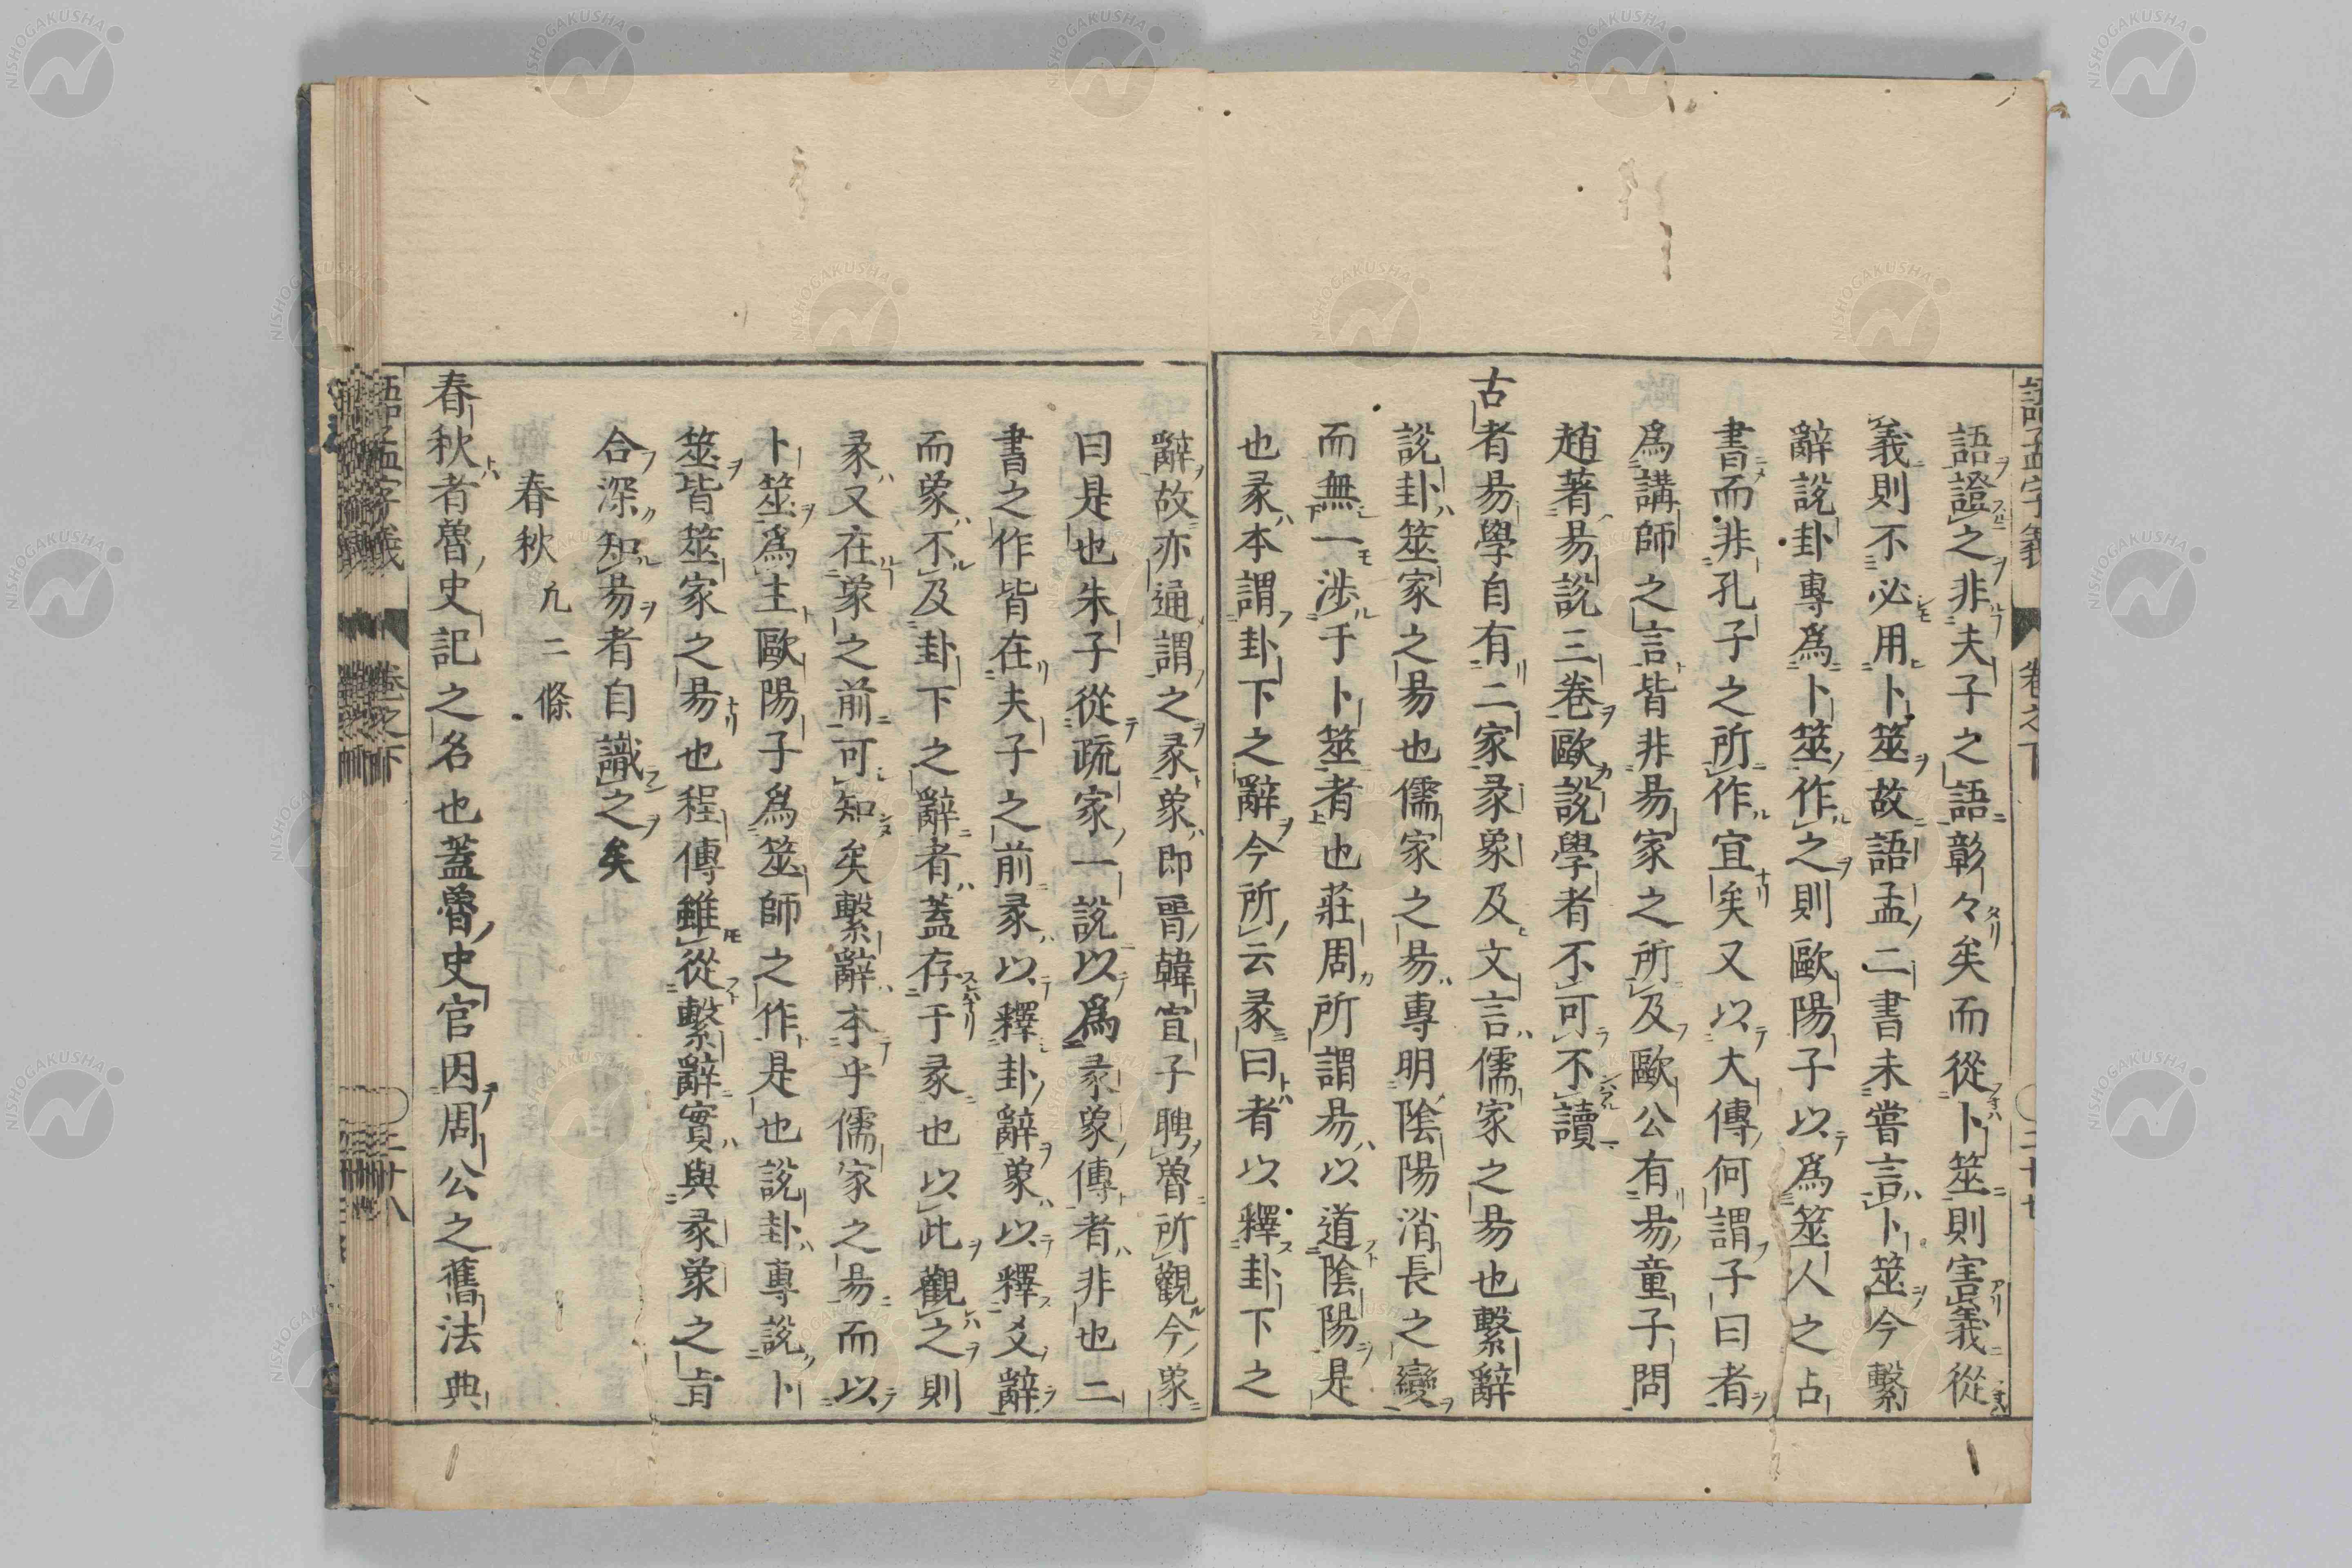 語證之非夫子之語彰々矣而從卜筮則害義從
義則不必用卜筮故語孟二書未嘗言卜筮今繫
辭說卦專爲卜筮作之則歐陽子以爲筮人之占
書而非孔子之所作宜矣又以大傳何謂子曰者
爲講師之言皆非易家之所及歐公有易童子問
趙著易說三卷歐說學者不可不讀
古者易學自有二家彖象及文言儒家之易也繫辭
說卦筮家之易也儒家之易專明陰陽消長之變
而無一涉于卜筮者也莊周所謂易以道陰陽是
也彖本謂卦下之辭今所云彖曰者以釋卦下之
辭故亦通謂之彖象即晉韓宣子聘魯所觀今象
曰是也朱子從疏家一說以爲彖象傳者非也二
書之作皆在夫子之前彖以釋卦辭象以釋爻辭
而象不及卦下之辭者蓋存于彖也以此觀之則
彖又在象之前可知矣繫辭本乎儒家之易而以
卜筮爲主歐陽子爲筮師之作是也說卦專說卜
筮皆筮家之易也程傳雖從繫辭實與彖象之旨
合深知易者自識之矣
春秋 凢二條
春秋者魯史記之名也蓋魯史官因周公之舊法典
語孟字義 卷之下 二十七
語孟字義 卷之下 二十八
NISHOGAKUSHA